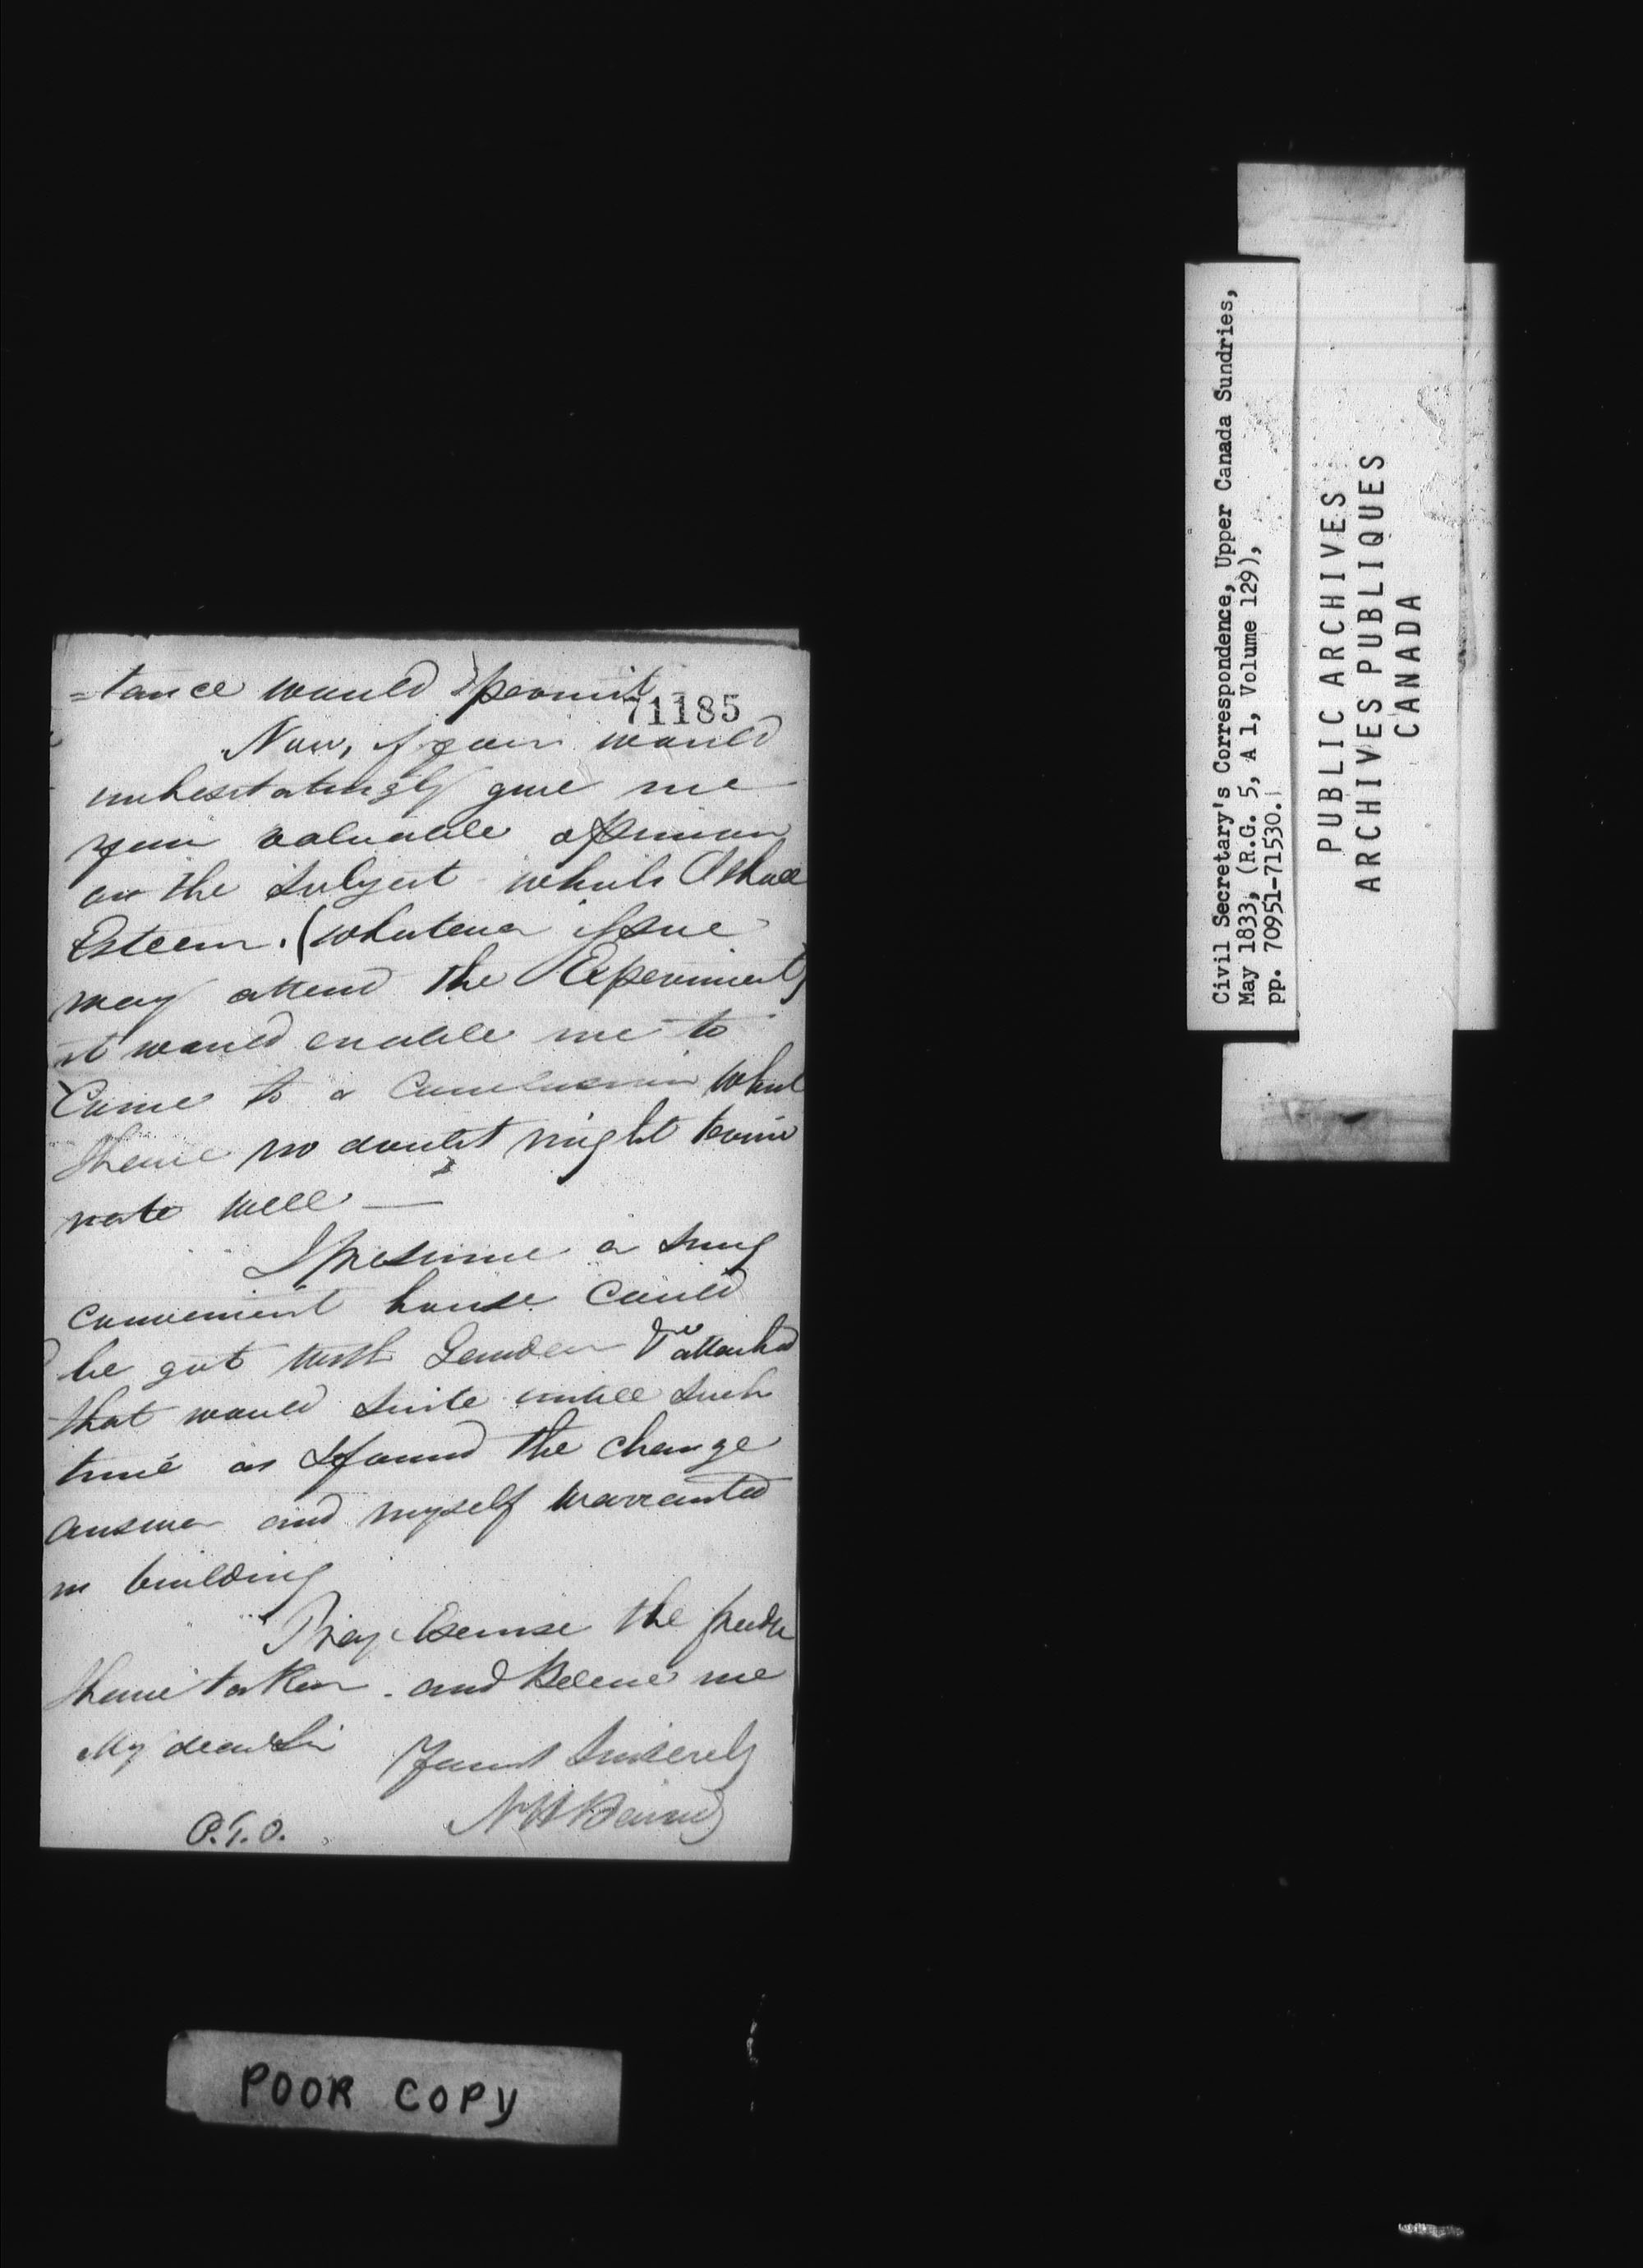 =tance would permit
71185
Now, if you would
unhesitatingly give me
your valuable opinion
on the subject which I shall
Esteem. (whatever issue
may attend the Experiment)
it would enable me to
Come to a Conclusion which
I have no doubt might termi
nate well —
I presume a snug
convenient house could
be got with Garden &c attached
that would suite untill such
time as I found the change
answer and myself warranted
in building
Pray Excuse the freedom
I have taken. and Believe me
My dear Sir Yours Sincerely
N H Baird
P.T.O.
POOR COPY
Civil Secretary's Correspondence, Upper Canada Sundries,
May 1833, (R.G. 5, A 1, Volume 129),
pp. 70951-71530.
PUBLIC ARCHIVES
ARCHIVES PUBLIQUES
CANADA